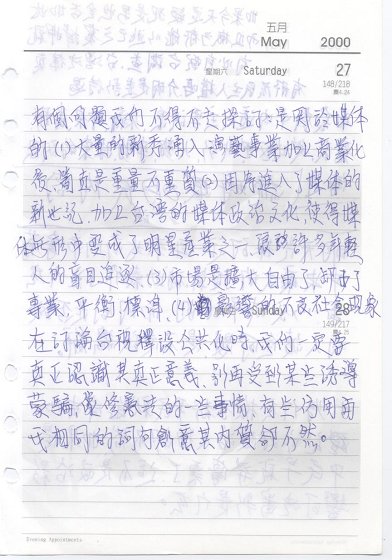 五月
May 2000
星期六 Saturday 27
148/218
農4.24
有個問題我們不得不去探討:是用於媒体
的(1)大量的新秀湧入演藝事業加上商業化
後,簡直是重量不重質(2)因為進入了媒体的
新世記,加上台灣的媒体政治文化,使得媒
体無形中變成了明星產業之一,導致許多年輕
人的盲目追逐,(3)市場是擴大自由了,卻少了
專業,平衡,標準,(4)的不良社會現象
Sunday 28
149/217
在討論台視釋股公共化時,我們一定要
真正認識其真正意義,別再受到某些誘導
蒙騙,黨修憲法的一些事情,有些仍用而
我相同的詞句創意其內質卻不然。
Evening Appointments